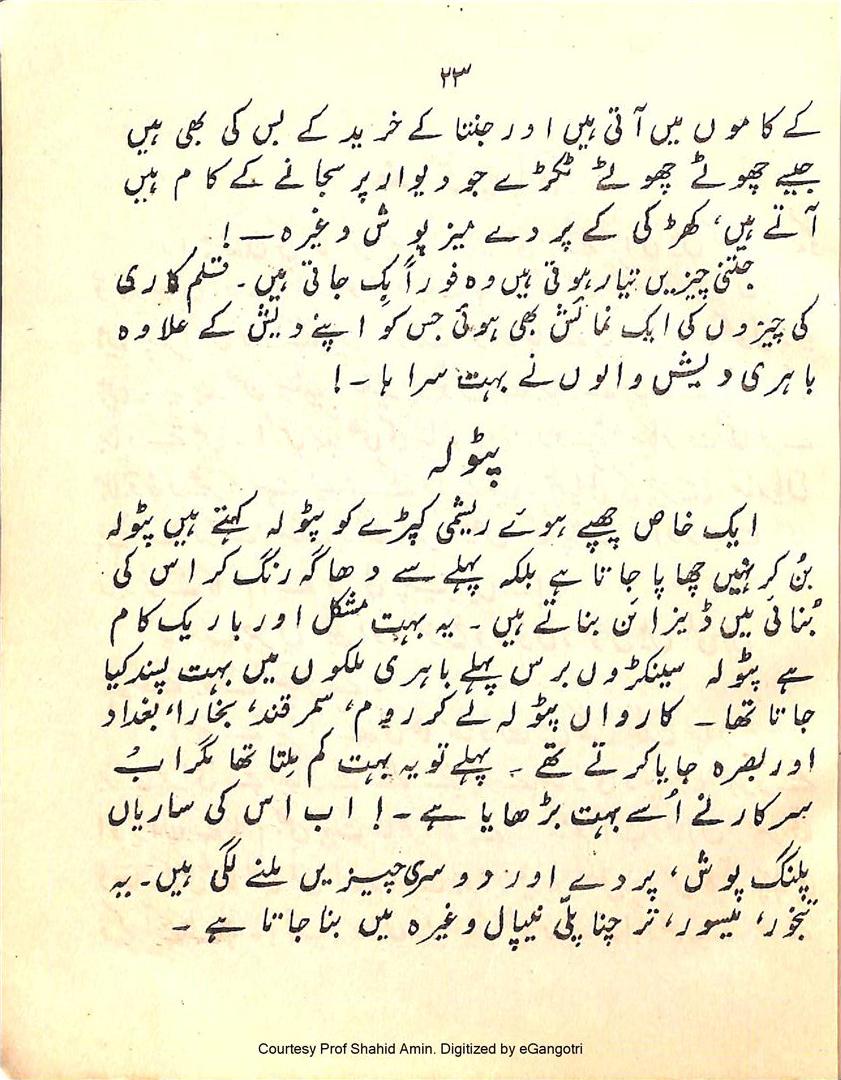 ۲۳
کے کاموں میں آتی ہیں اور جنتا کے خرید کے بس کی بھی ہیں
جیسے چھوٹے چھوٹے ٹکڑے جو دیوار پر سجانے کے کام ہیں
آتے ہیں، کھڑکی کے پردے میز پوش وغیرہ ۔!
جتنی چیزیں تیار ہوتی ہیں وہ فوراً بِک جاتی ہیں۔ قلم کاری
کی چیزوں کی ایک نمائش بھی ہوئی جس کو اپنے دیش کے علاوہ
باہری دیش والوں نے بہت سراہا ۔!
پٹولہ
ایک خاص چھپے ہوئے ریشمی کپڑے کو پٹولہ کہتے ہیں پٹولہ
بُن کر نہیں چھاپا جاتا ہے بلکہ پہلے سے دھاگہ رنگ کر اس کی
بُنائی میں ڈیزائن بناتے ہیں ۔ یہ بہت مشکل اور باریک کام
ہے پٹولہ سینکڑوں برس پہلے باہری ملکوں میں بہت پسند کیا
جاتا تھا ۔ کارواں پٹولہ لے کر روم، سمرقند، بخارا، بغداد
اور بصرہ جایا کرتے تھے ۔ پہلے تو یہ بہت کم مِلتا تھا مگر اب
سرکار نے اُسے بہت بڑھایا ہے ۔! اب اس کی ساریاں
پلنگ پوش، پردے اور دوسری چیزیں ملنے لگی ہیں۔ یہ
تنجور، میسور، تر چنا پلّی نیپال وغیرہ میں بنا جاتا ہے ۔
Courtesy Prof Shahid Amin. Digitized by eGangotri